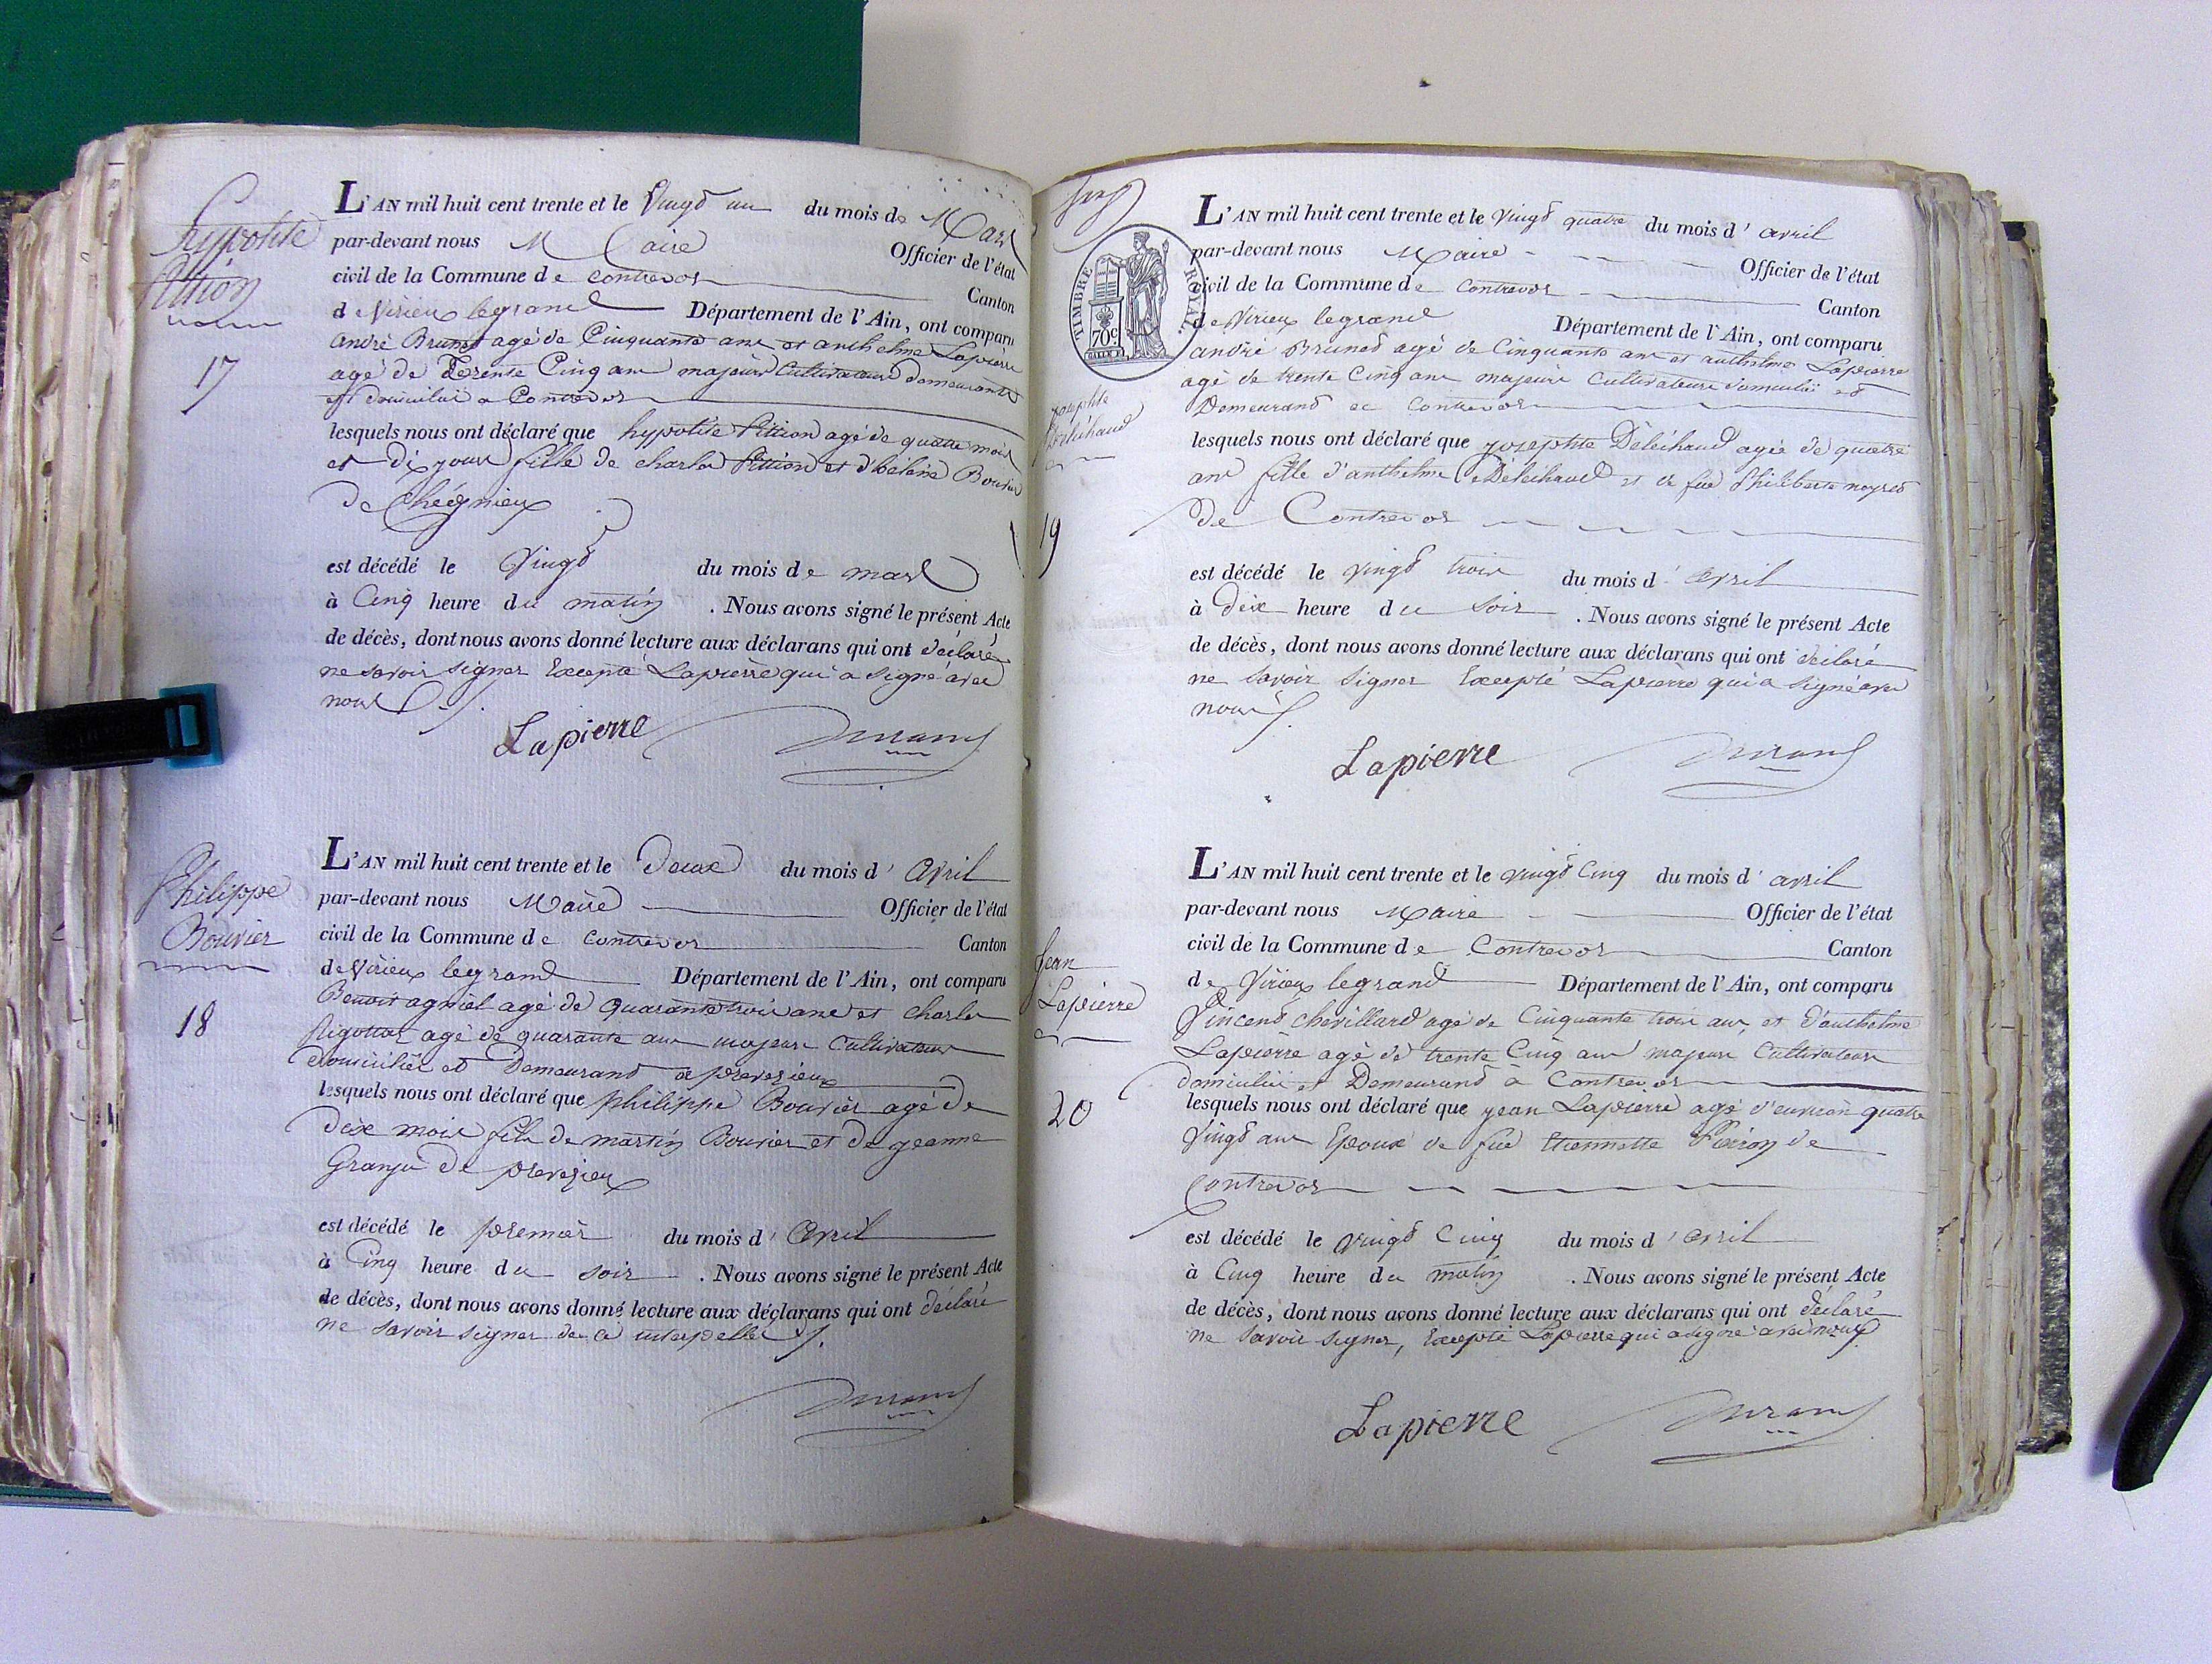 hypolite
Pittion
17
L'AN mil huit cent trente et le Vingt un du mois de Mars
par-devant nous Maire Officier de l'état
civil de la Commune de Contrevos Canton
de Virieux legrand Département de l'Ain, ont comparu
andré Brunet agé de Cinquante ans et anthelme Lapierre
agé de Trente Cinq ans majeurs Cultivateurs demeurants
et domicilié a Contrevos
lesquels nous ont déclaré que hypolite Pittion agé de quatre mois
et dix jours fille de charles Pittion et d'hélène Bouvier
de Chégnieux
est décédé le Vingt du mois de mars
à Cinq heure du matin . Nous avons signé le présent Acte
de décès, dont nous avons donné lecture aux déclarans qui ont déclaré
ne savoir signer Excepté Lapierre qui a signé avec
nous
Lapierre
Philippe
Bouvier
18
L'AN mil huit cent trente et le Deux du mois d' Avril
par-devant nous Maire Officier de l'état
civil de la Commune de Contrevos Canton
de Virieux legrand Département de l'Ain, ont comparu
Benoit agniel agé de Quarante trois ans et charles
Rigottos agé de quarante ans majeurs Cultivateurs
domicilié et Demeurant a preveзieux
lesquels nous ont déclaré que philippe Bouvier agé de
dix mois fils de martin Bouvier et de jeanne
Granju de prevezieux
est décédé le premier du mois d' Avril
à Cinq heure du soir . Nous avons signé le présent Acte
de décès, dont nous avons donné lecture aux déclarans qui ont déclaré
ne savoir signer de ce interpellé
TIMBRE ROYAL
70c
josephte
Deléchaud
19
L'AN mil huit cent trente et le Vingt quatre du mois d' avril
par-devant nous Maire Officier de l'état
civil de la Commune de Contrevos Canton
de Virieux legrand Département de l'Ain, ont comparu
andré Brunet agé de Cinquante ans et anthelme Lapierre
agé de trente Cinq ans majeurs Cultivateurs domicilié et
Demeurant a Contrevos
lesquels nous ont déclaré que josephte Deléchaud agée de quatre
ans fille d'anthelme Deléchaud et de fue Philiberte
de Contrevos
est décédé le vingt trois du mois d' avril
à dix heure du soir . Nous avons signé le présent Acte
de décès, dont nous avons donné lecture aux déclarans qui ont déclaré
ne savoir signer Excepté Lapierre qui a signé avec
nous
Lapierre
Jean
Lapierre
20
L'AN mil huit cent trente et le vingt Cinq du mois d' avril
par-devant nous Maire Officier de l'état
civil de la Commune de Contrevos Canton
de Virieux legrand Département de l'Ain, ont comparu
Vincent chevillard agé de Cinquante trois ans, et d'anthelme
Lapierre agé de trente Cinq ans majeurs Cultivateurs
domicilié et Demeurand à Contrevos
lesquels nous ont déclaré que jean Lapierre agé d'environ quatre
Vingt ans Epoux de fue Etiennette de
Contrevos
est décédé le vingt Cinq du mois d' avril
à Cinq heure du matin . Nous avons signé le présent Acte
de décès, dont nous avons donné lecture aux déclarans qui ont déclaré
ne savoir signer, Excepté Lapierre qui a signé avec nous
Lapierre